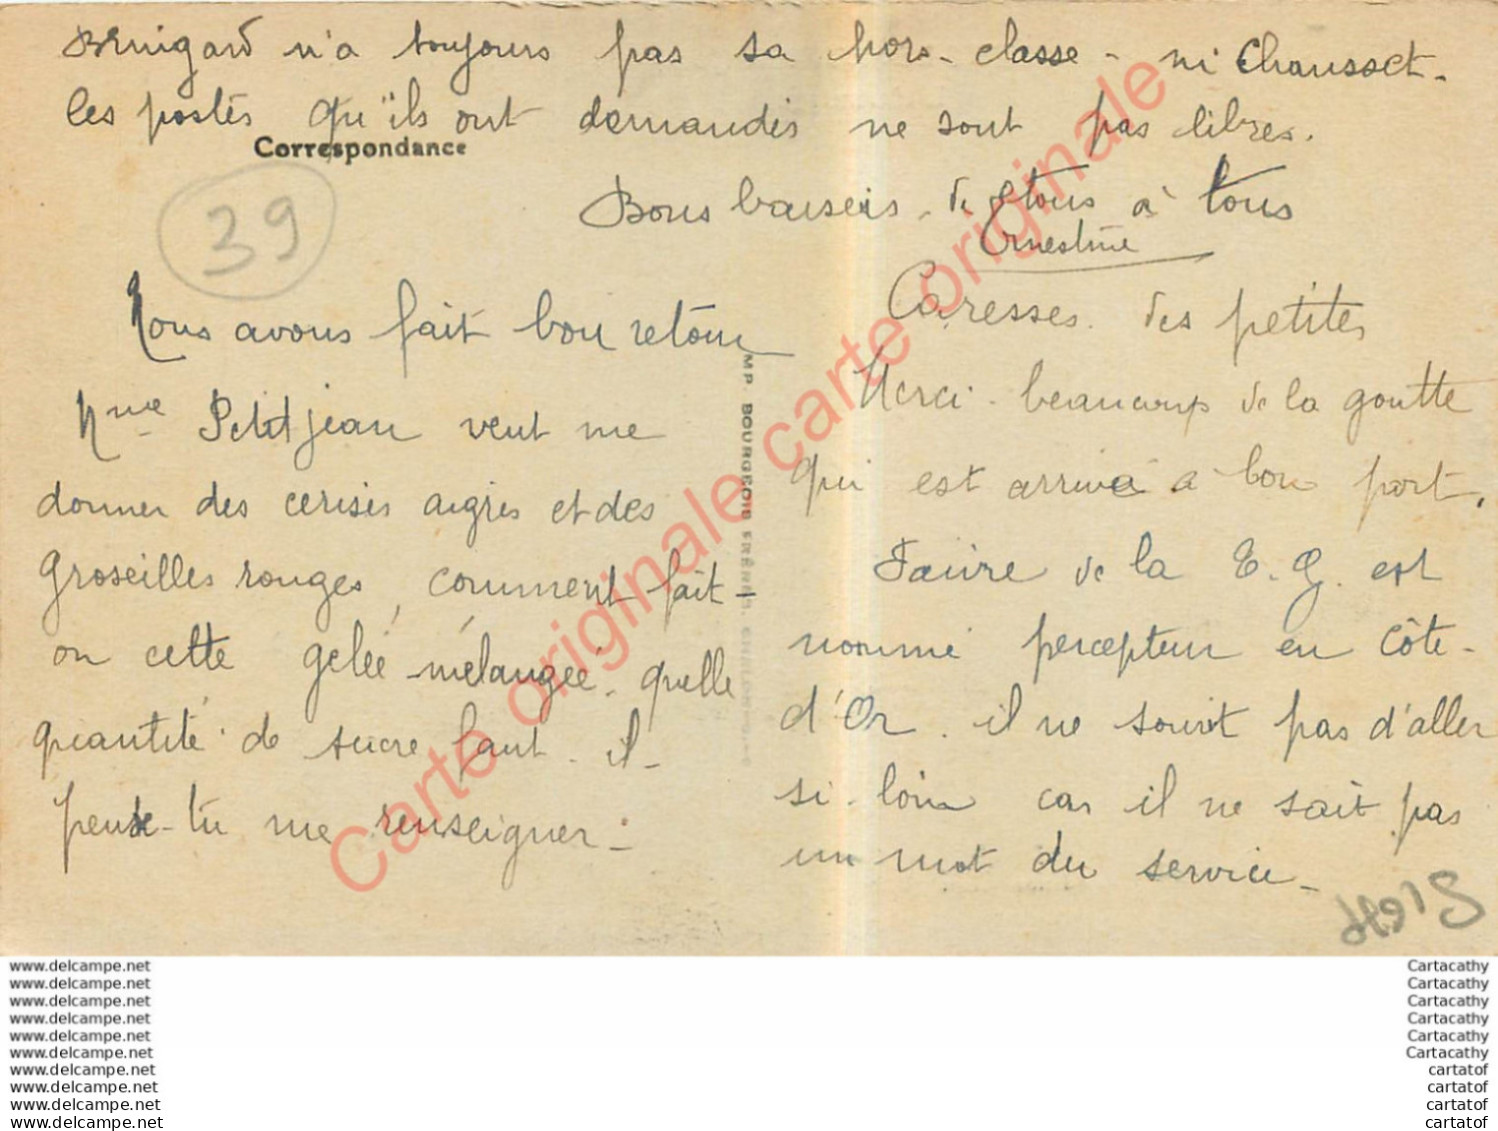 n'a toujours pas sa hors-classe - ni Chausset -
les postes qu'ils ont demandés ne sont pas libres.
Correspondance
39
Bons baisers de tous à tous
Ernestine
Nous avons fait bon retour
Mme Petitjean veut me
donner des cerises aigres et des
groseilles rouges, comment fait-
on cette gelée mélangée. quelle
quantité de sucre faut-il-
peux-tu me renseigner -
Caresses des petites
Merci beaucoup de la goutte
qui est arrivé à bon port.
Faivre de la T.G. est
nommé percepteur en Côte-
d'Or. il ne souvit pas d'aller
si loin car il ne sait pas
un mot du service -
MP. BOURGEOIS FRÈRES, CHALON-S-S
Carte originale carte originale
www.delcampe.net
www.delcampe.net
www.delcampe.net
www.delcampe.net
www.delcampe.net
www.delcampe.net
www.delcampe.net
www.delcampe.net
www.delcampe.net
www.delcampe.net
Cartacathy
Cartacathy
Cartacathy
Cartacathy
Cartacathy
Cartacathy
cartatof
cartatof
cartatof
cartatof